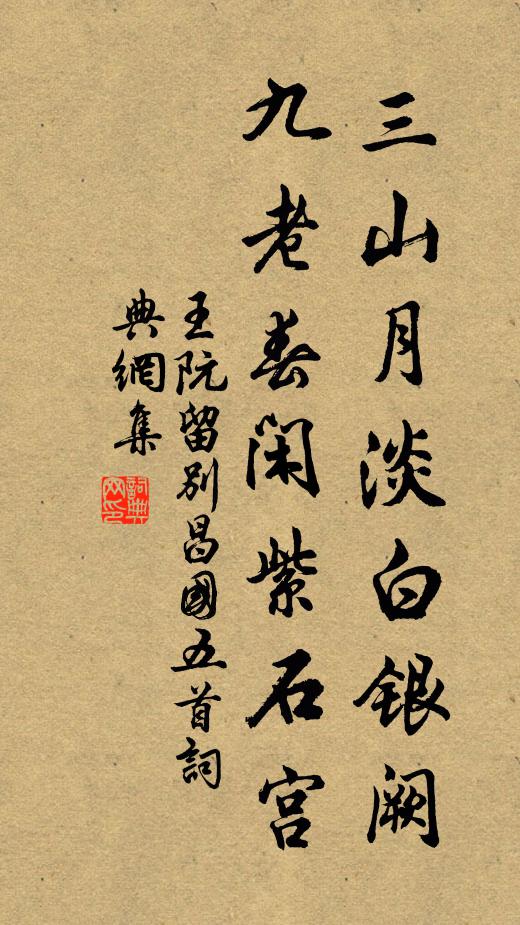 三山月淡白银阙
九老春闲紫石宫
王阮留别昌國五首詞
典網集
詞典网印